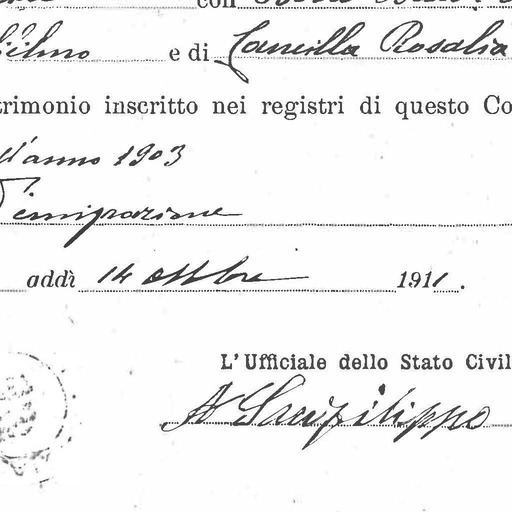 con
e di Cancilla Rosalia
trimonio inscritto nei registri di questo Co
ll'anno 1903
emigrazione
addì 14 ottobre 1911.
L'Ufficiale dello Stato Civil
A Sanfilippo